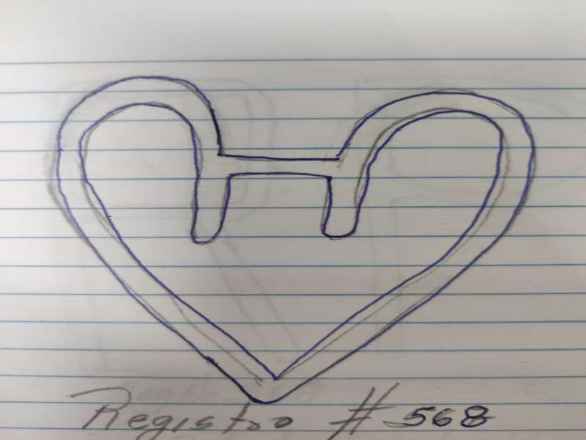 Registro # 568